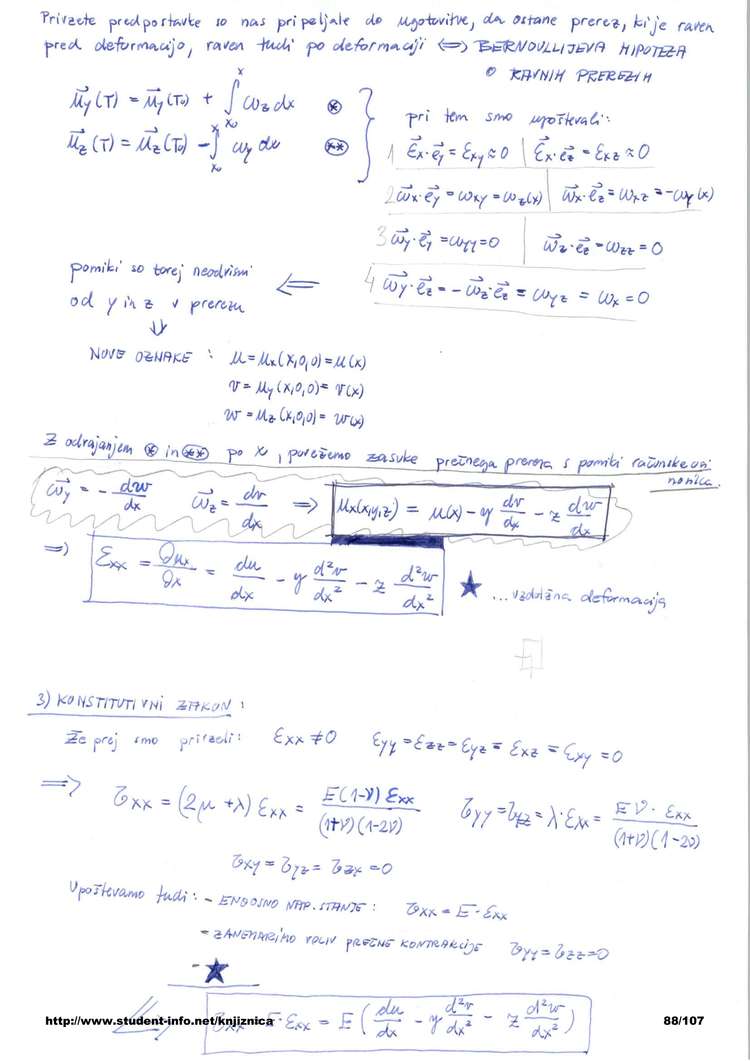 Privzete predpostavke so nas pripeljale do ugotovitve, da ostane prerez, ki je raven
pred deformacijo, raven tudi po deformaciji ⟺ BERNOULLIJEVA HIPOTEZA
O RAVNIH PREREZIH
u⃗y(T) = u⃗y(T₀) + ∫_{x₀}^{x} ωz dx ⊛
u⃗z(T) = u⃗z(T₀) − ∫_{x₀}^{x} ωy dx (**)
pri tem smo upoštevali:
1 ε⃗x·e⃗y = εxy ≈ 0 | ε⃗x·e⃗z = εxz ≈ 0
2 ω⃗x·e⃗y = ωxy = ωz(x) | ω⃗x·e⃗z = ωxz = −ωy(x)
3 ω⃗y·e⃗y = ωyy = 0 | ω⃗z·e⃗z = ωzz = 0
4 ω⃗y·e⃗z = −ω⃗z·e⃗z = ωyz = ωx = 0
pomiki so torej neodvisni ⟸
od y in z v prerezu
⇓
NOVE OZNAKE : u = ux(x,0,0) = u(x)
v = uy(x,0,0) = v(x)
w = uz(x,0,0) = w(x)
Z odvajanjem ⊛ in (**) po x, povežemo zasuke prečnega prereza s pomiki računske osi
nosilca.
ω⃗y = − dw/dx ω⃗z = dv/dx ⟹ ux(x,y,z) = u(x) − y dv/dx − z dw/dx
⟹ εxx = ∂ux/∂x = du/dx − y d²v/dx² − z d²w/dx² ★ ... vzdolžna deformacija
3) KONSTITUTIVNI ZAKON :
Že prej smo privzeli: εxx ≠ 0 εyy = εzz = εyz = εxz = εxy = 0
⟹ σxx = (2μ + λ) εxx = E(1−ν) εxx / (1+ν)(1−2ν) σyy = σyz = λ·εxx = E ν · εxx / (1+ν)(1−2ν)
σxy = σyz = σzx = 0
Upoštevamo tudi : – ENOOSNO NAP. STANJE : σxx = E · εxx
– ZANEMARIMO VPLIV PREČNE KONTRAKCIJE σyy = σzz = 0
– ★
σxx = E · εxx = E ( du/dx − y d²v/dx² − z d²w/dx² )
http://www.student-info.net/knjiznica 88/107